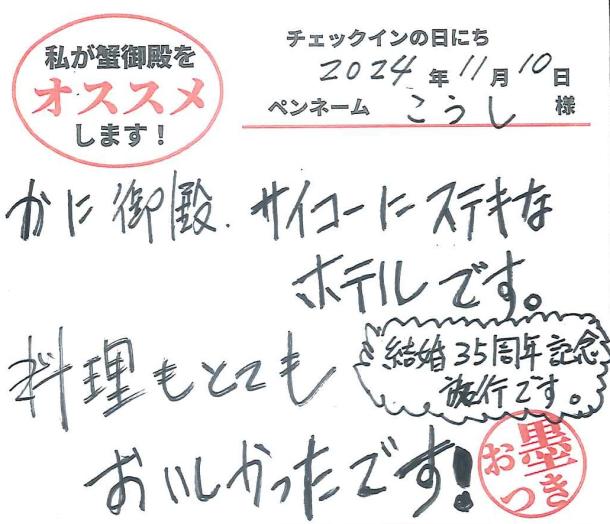 私が蟹御殿を
オススメ
します！
チェックインの日にち
2024年11月10日
ペンネーム こうし 様
かに御殿. サイコーにステキな
ホテルです。
料理もとても
おいしかったです！
結婚35周年記念
旅行です。
お墨
つき